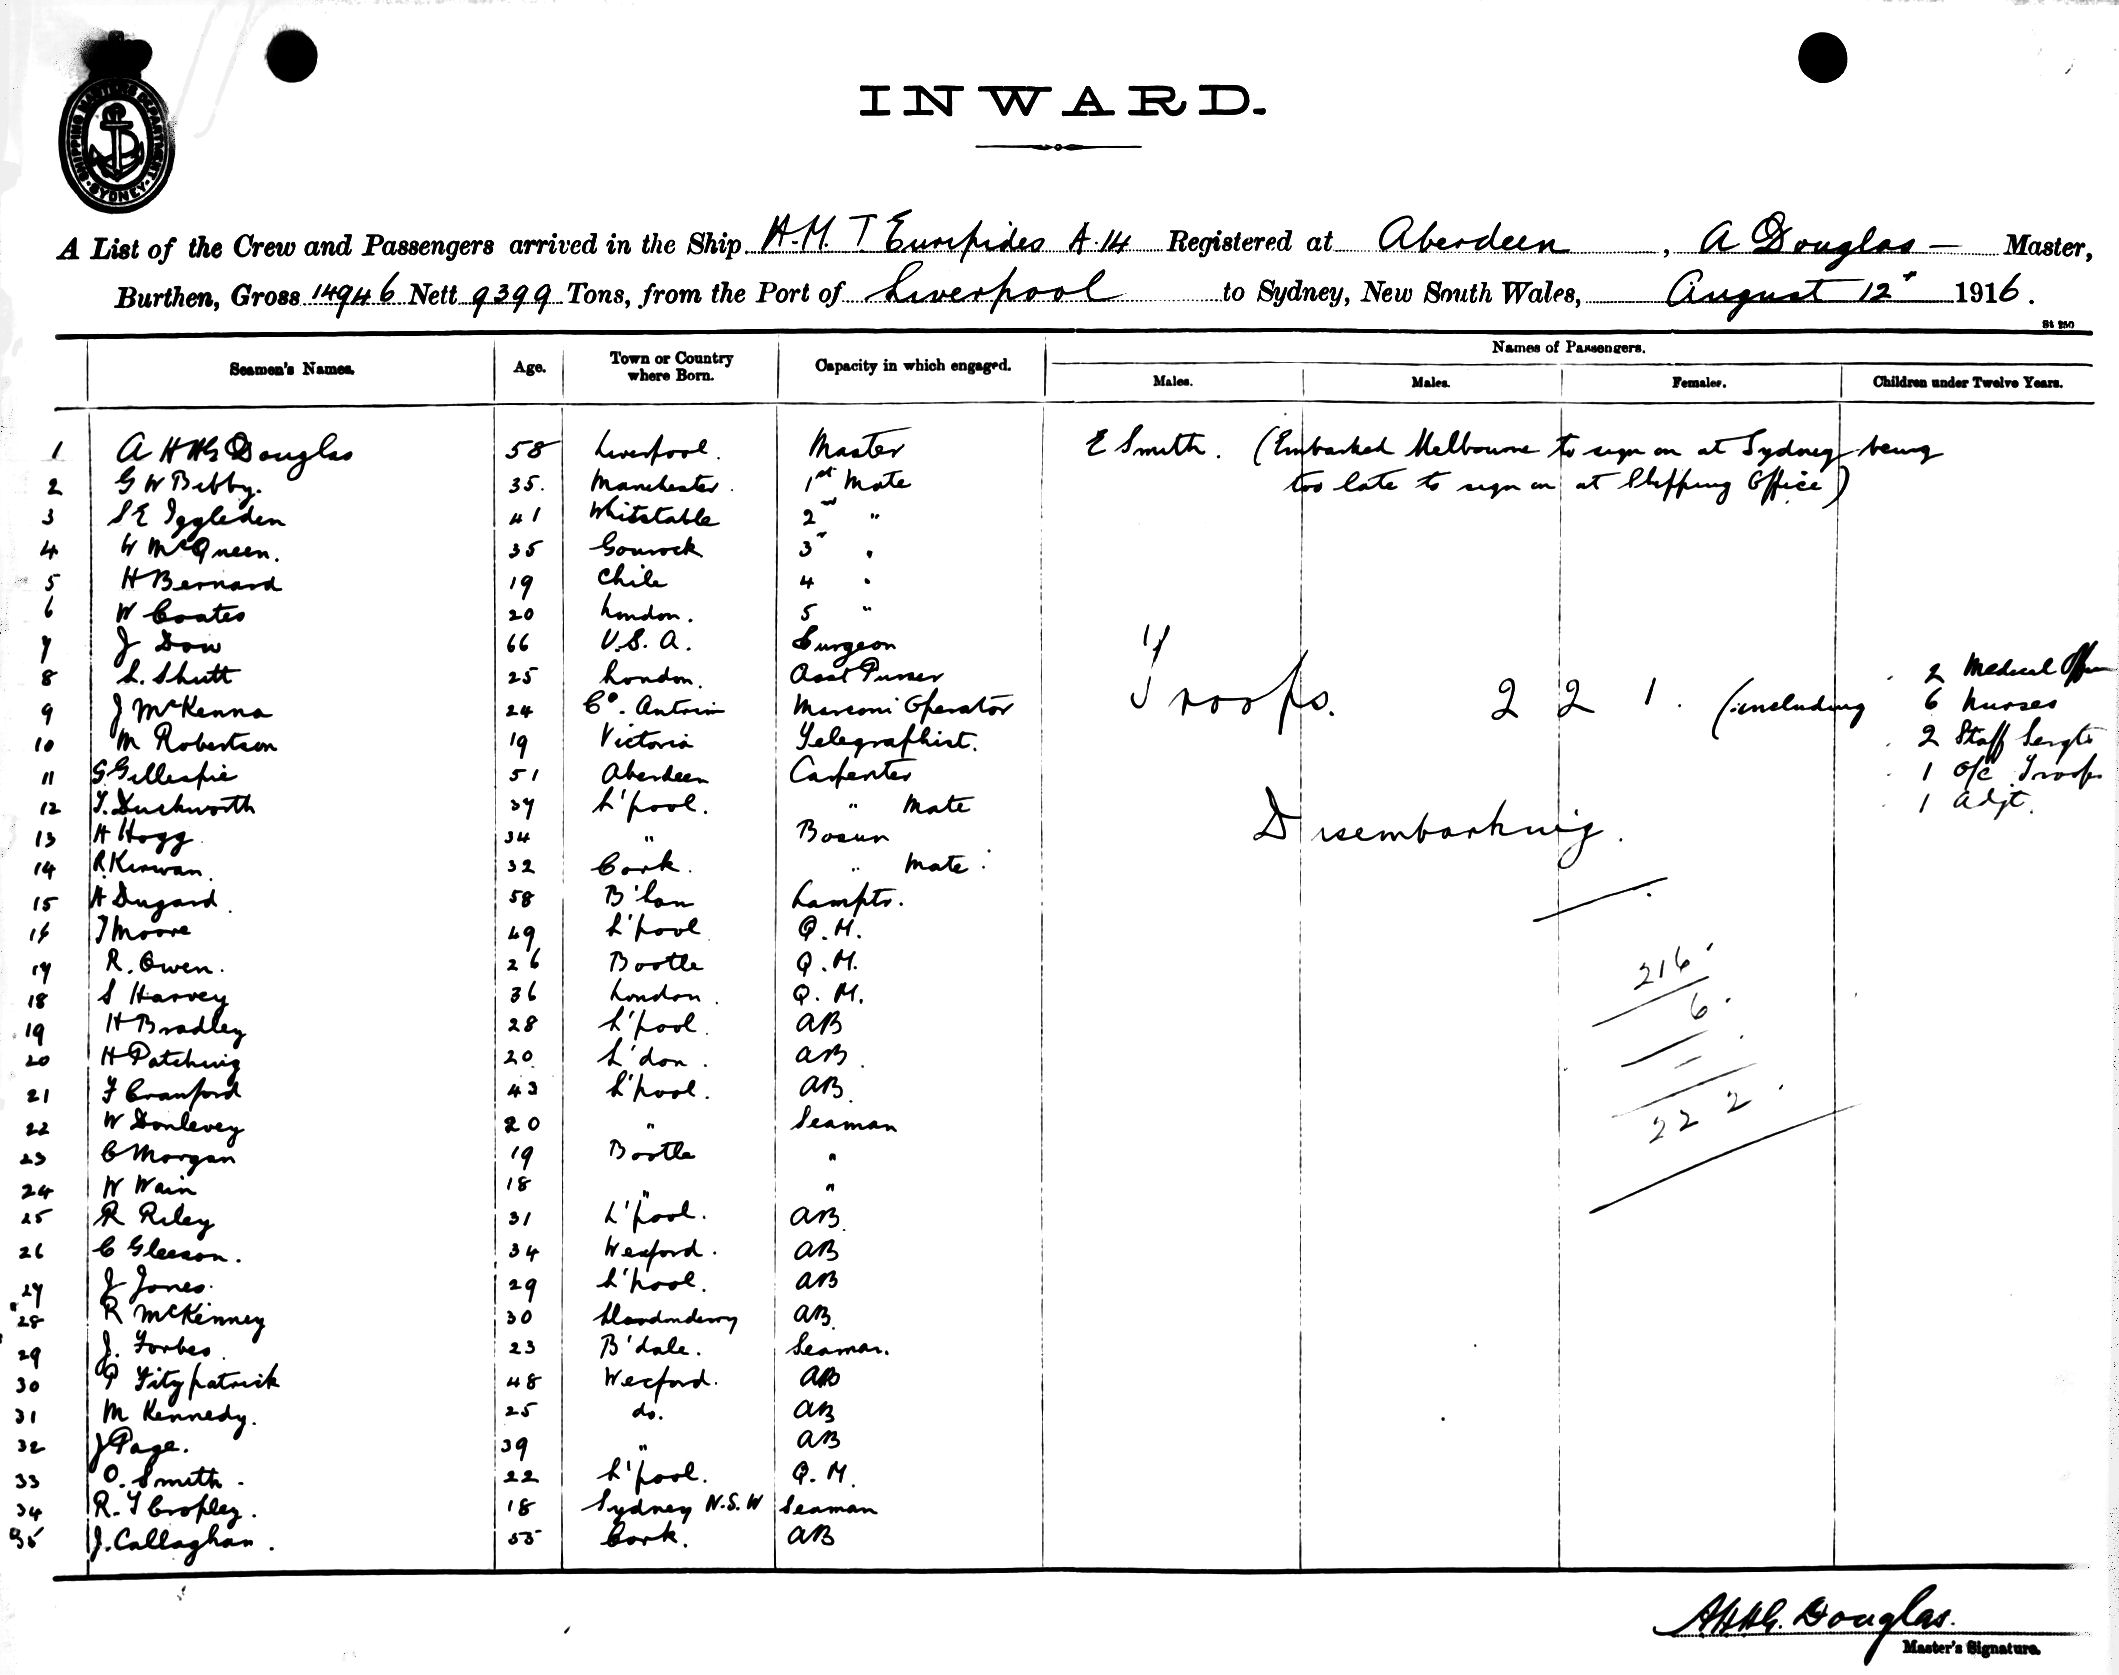 SHIPPING MASTERS DEPARTMENT
SYDNEY
INWARD.
A List of the Crew and Passengers arrived in the Ship H.M.T Euripides A.14 Registered at Aberdeen, A Douglas — Master,
Burthen, Gross 14946 Nett 9399 Tons, from the Port of Liverpool to Sydney, New South Wales, August 12 1916.
St 250
Seamen's Names. Age. Town or Country where Born. Capacity in which engaged. Names of Passengers.
Males. Males. Females. Children under Twelve Years.
1 A H H G Douglas 58 Liverpool. Master E Smith. (Embarked Melbourne to sign on at Sydney being
2 G W Bibby. 35. Manchester. 1st Mate too late to sign on at Shipping Office)
3 S E Iggleden 41 Whitstable 2nd "
4 W McQueen. 35 Gourock 3r "
5 H Bernard 19 Chile 4 "
6 W Coates 20 London. 5 "
7 J Dow 66 U.S.A. Surgeon
8 L. Shutt 25 London. Asst Purser 2 Medical
9 J McKenna 24 Co. Antrim Marconi Operator Troops. 221. (including 6 Nurses
10 M Robertson 19 Victoria Telegraphist. 2 Staff Sergts
11 G Gillespie 51 Aberdeen Carpenter 1 O/C Troops
12 T. Duckworth 37 L'pool. " Mate 1 Adjt.
13 H Hogg 34 " Bosun Disembarking.
14 R Kirwan. 32 Cork. " Mate
15 H Dugard. 58 B'ham Lampts.
16 T Moore 49 L'pool Q.M.
17 R. Owen. 26 Bootle Q.M. 216
18 S Harvey 36 London. Q.M. 6
19 H Bradley 28 L'pool. AB
20 H Patching 20 L'don. AB
21 F Cranford 43 L'pool. AB 222
22 W Donlevey 20 " Seaman
23 C Morgan 19 Bootle "
24 W Wain 18 " "
25 R Riley 31 L'pool. AB
26 C Gleeson. 34 Wexford. AB
27 J Jones. 29 L'pool. AB
28 R McKinney 30 AB
29 J. Forbes. 23 B'dale. Seaman.
30 P Fitzpatrick 48 Wexford. AB
31 M Kennedy. 25 do. AB
32 J Page. 39 " AB
33 O. Smith. 22 L'pool. Q.M.
34 R. T Cropley. 18 Sydney N.S.W Seaman
35 J. Callaghan. 55 Cork. AB
AHHG. Douglas.
Master's Signature.